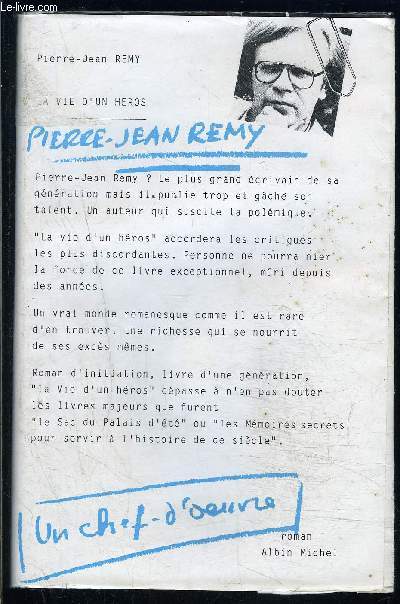 Le-livre.com
Pierre-Jean REMY
LA VIE D'UN HEROS
PIERRE-JEAN REMY
Pierre-Jean Remy ? Le plus grand écrivain de sa
génération mais il publie trop et gâche son
talent. Un auteur qui suscite la polémique.
"La vie d'un héros" accordera les critiques
les plus discordantes. Personne ne pourra nier
la force de ce livre exceptionnel, mûri depuis
des années.
Un vrai monde romanesque comme il est rare
d'en trouver. Une richesse qui se nourrit
de ses excès mêmes.
Roman d'initiation, livre d'une génération,
"la Vie d'un héros" dépasse à n'en pas douter
les livres majeurs que furent
"le Sac du Palais d'été" ou "les Mémoires secrets
pour servir à l'histoire de ce siècle".
Un chef-d'oeuvre
roman
Albin Michel